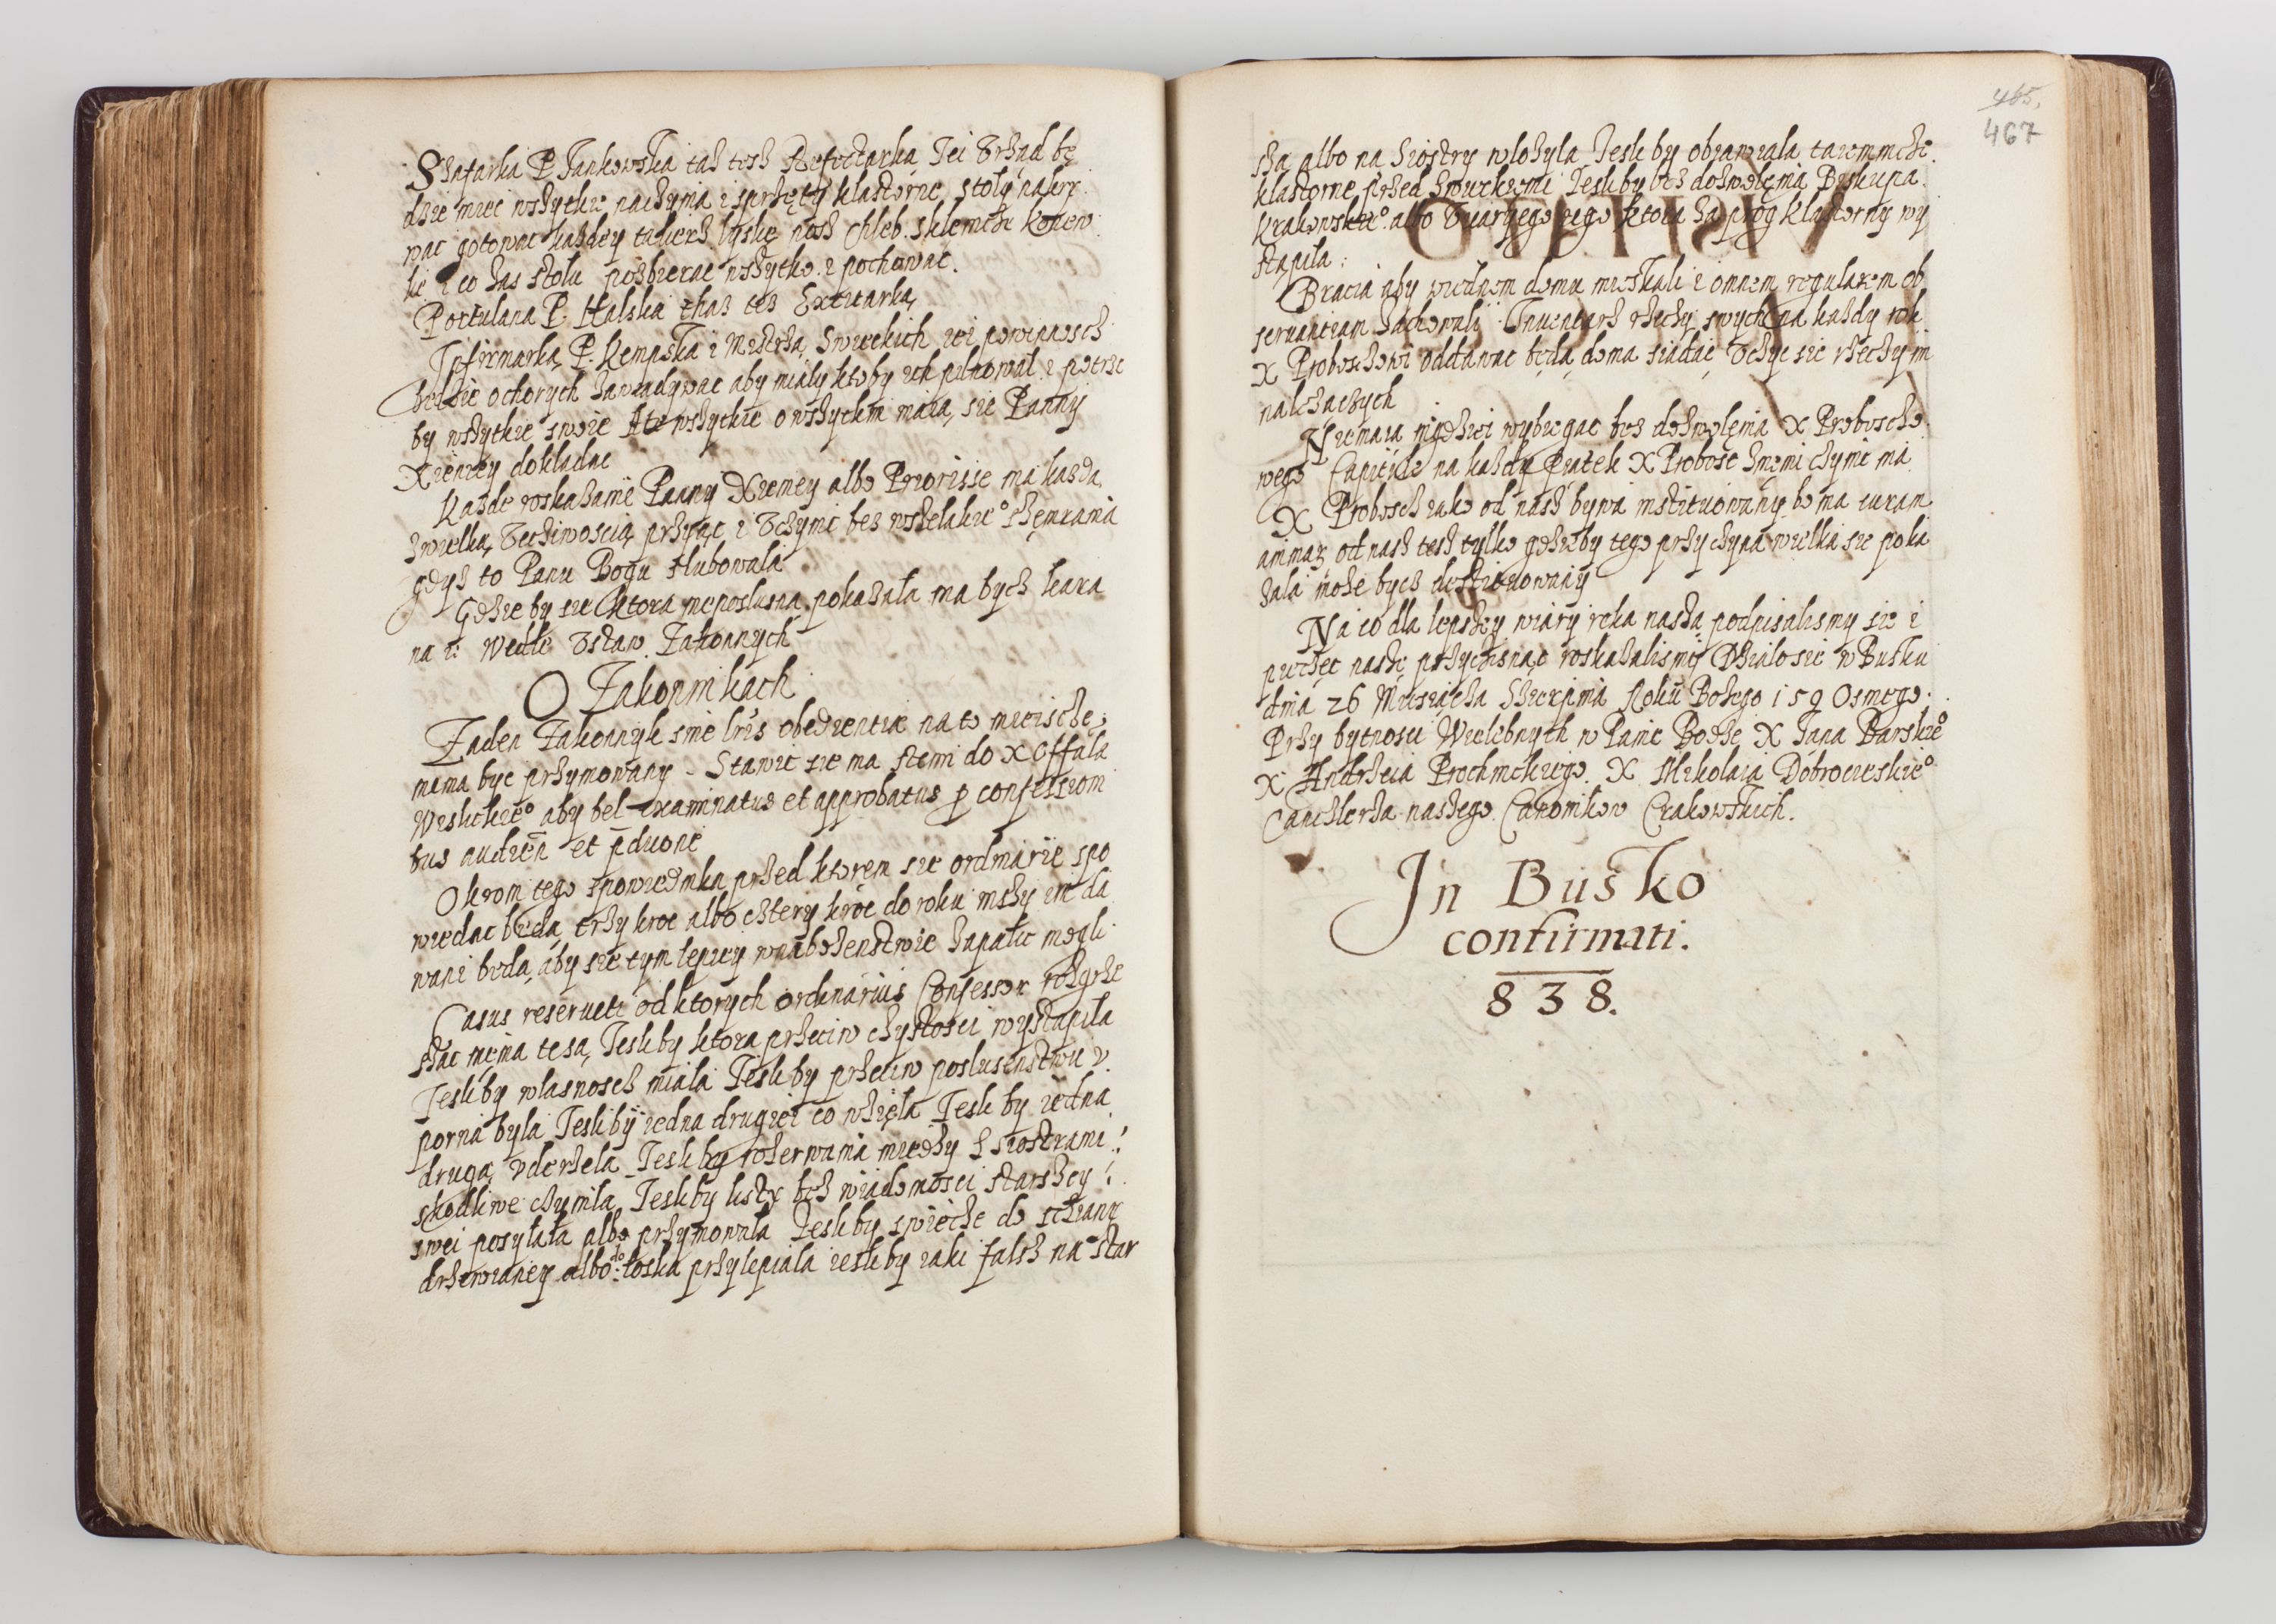 Szafarka P. Jankowska tak tesz Refectarka Jei Vrżąd bę
dzie miec wszytkie naczynia i sprzęty klastorne stoły nakry
wac gotowac każdey talierz łyskę nosz chleb. sklenicze konew
ki i co zas stołu pozbierac wszytko i pochowac.
Portulana P. Halska thaż też Extuarka,
Infirmarka, P. Kempska i Mistrża Swieckich iei powinnosch
będzie ochorych zawiadywac aby miały ktoby ich pilnowal i potrze
by wszytkie swoie A te wszyckie o wszyckim maią, sie Panny
Xieniey dokladac
Każde roskazanie Panny Xieniey albo Priorisse ma każda,
zwielką, Vcciwoscią, przyiąc i Vczynic bez wszelakie° szęmrania
gdyż to Panu Bogu slubowala
Gdzie by sie ktora nieposlusna pokazala ma bycz kara
na i: wedle Vstaw Zakonnych
O Zakonnikach
Zaden Zakonnyk sine lris obedientie na to mieiscze,
niema byc przymowany - Stawic sie ma stemi do X offala
Wislickie° aby bel examinatus et approbatus p confession
bus audien et pduone
Okrom tego spowiednika przed ktorem sie ordinarie spo
wiedac będą, trzy kroc albo cztery kroc do roku inszy im da
wani będa, aby sie tym lepiey wnabożenstwie zapalic mogli.
Casus reseruati od ktorych ordinarius Confessor rozgrze
szac niema te są, Jesli by ktora przeciw czystosci wystąpila
Jesli by wlasnosch miala Jesli by przeciw poslusenstwu v
porna była Jesli by iedna drugiei co wzięła Jesli by iedna
drugą, vderzela Jesli by rozerwania miedzy Siostrami
skodliwe czynila Jesli by listy bez wiadomosci starszey
swei posyłała albo przymowała Jesli by swiecke do sciany
drżewianey albo do: łoska przylepiala iesli by iaki falsz na star
465.
467
szą albo na Siostry włożyla Jesli by obiawiala taiemnicze
klastorne przed Swieckiemi Jesli by bez dozwolęnia Biskupa
Krakowskie° albo Vicaryego iego ktora za prog klastorny wy
stąpila:
VISITATIO
Bracia aby wiednem domu mieszkali i omnem regularem ob
seruantiam zachowali. Inuentarz rzeczy swych na każdy rok
X Proboszczowi oddawac będą, doma siadac, Vczyc sie rzeczy m
nalezaczych
Niemaią nigdziei wybiegac bes dozwolęnia X Proboszczo
wego Capitule na każdy Piatek X Probosc znimi czynic ma
X Probosch iako od nasz bywa instituowany bo ma curam
animarz od nasz tesz tylko gdzieby tego przyczyna wielka sie poka
zala może bycz destituowany
Na co dla lepszey wiary ręka naszą, podpisalismy sie i
pieczęc naszę przycisnąc roskazalismy Dzialo sie w Busku
dnia 26 Miesiącza Sierpnia Roku Bożego 159 Osmego.
Przy bytnosci Wielebnych w Panie Bodze X Jana Barskie°
X Andrzeia Prochnickiego. X Mikolaia Dobrocieskie°
Canclerza naszego Canonikow Crakowskich.
In Busko
confirmati.
838.